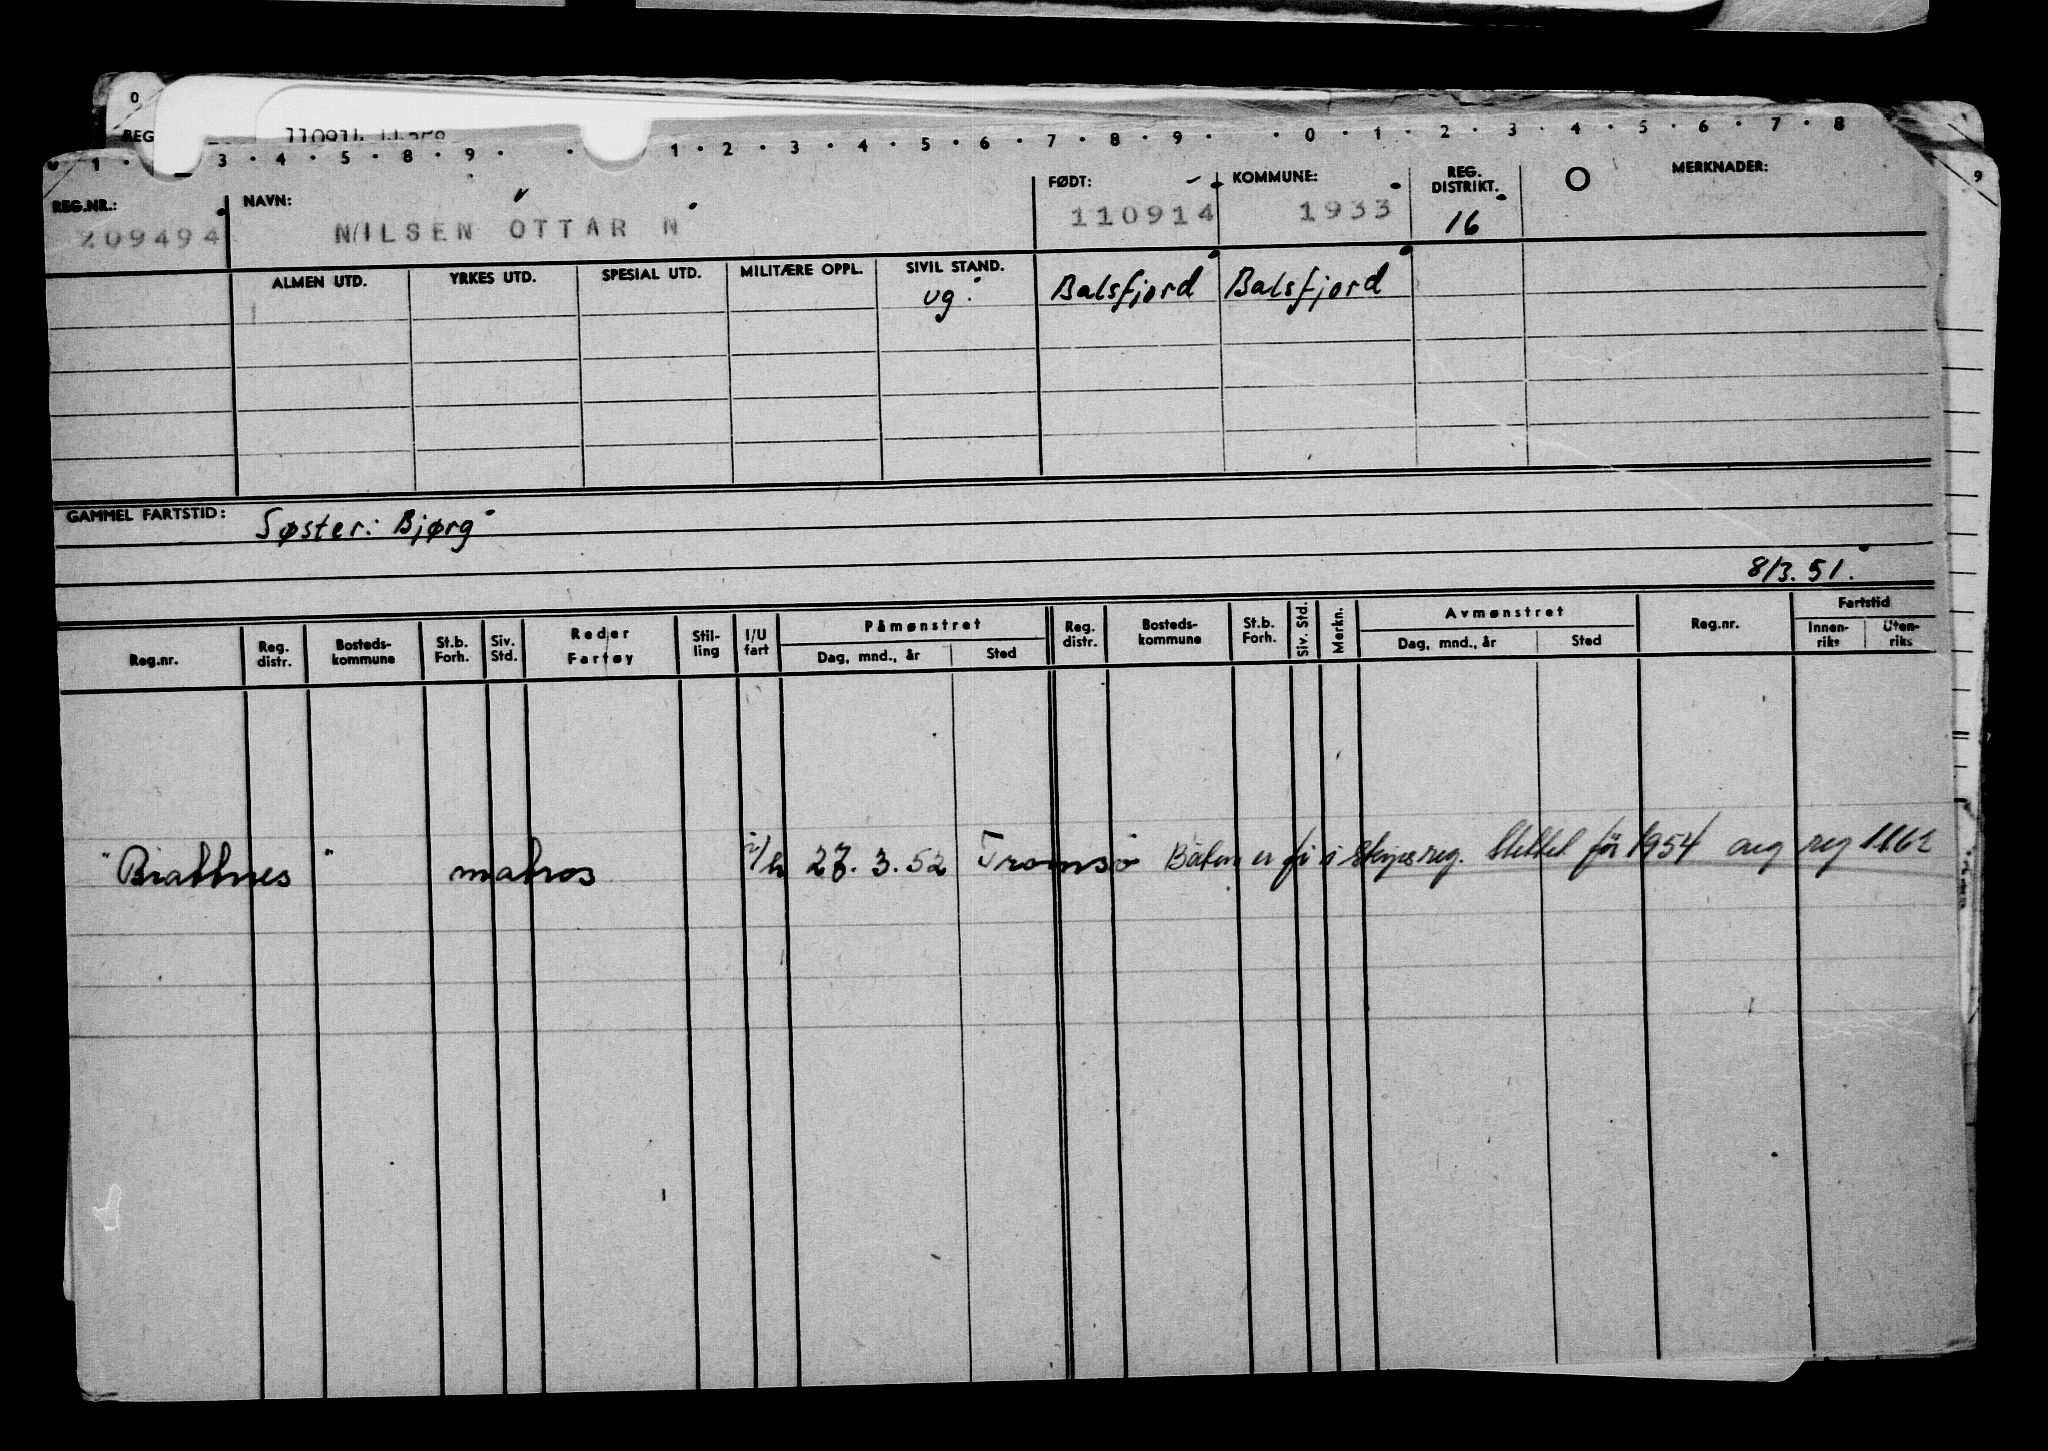 0
REG
110914 11589
1 · 3 · 4 · 5 · 8 · 9 · · 1 · 2 · 3 · 4 · 5 · 6 · 7 · 8 · 9 · · 0 · 1 · 2 · 3 · 4 · 5 · 6 · 7 · 8
9
REG.NR.: NAVN: FØDT: KOMMUNE: REG. DISTRIKT. MERKNADER:
209494 NILSEN OTTAR N 110914 1933 16
ALMEN UTD. YRKES UTD. SPESIAL UTD. MILITÆRE OPPL. SIVIL STAND.
ug. Balsfjord Balsfjord
GAMMEL FARTSTID: Søster: Bjørg
8/3. 51.
Reg.nr. Reg. distr. Bosteds- kommune St.b. Forh. Siv. Std. Reder Fartøy Stil- ling I/U fart Påmønstret Dag, mnd., år Sted Reg. distr. Bosteds- kommune St.b. Forh. Siv. Std. Merkn. Avmønstret Dag, mnd., år Sted Reg.nr. Fartstid Innen- riks Uten- riks
"Brattnes" matros 3.52 Tromsø Båten er i Skipsreg. Slettet før 1954 reg 1162